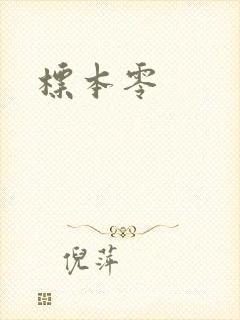 標本零
倪萍